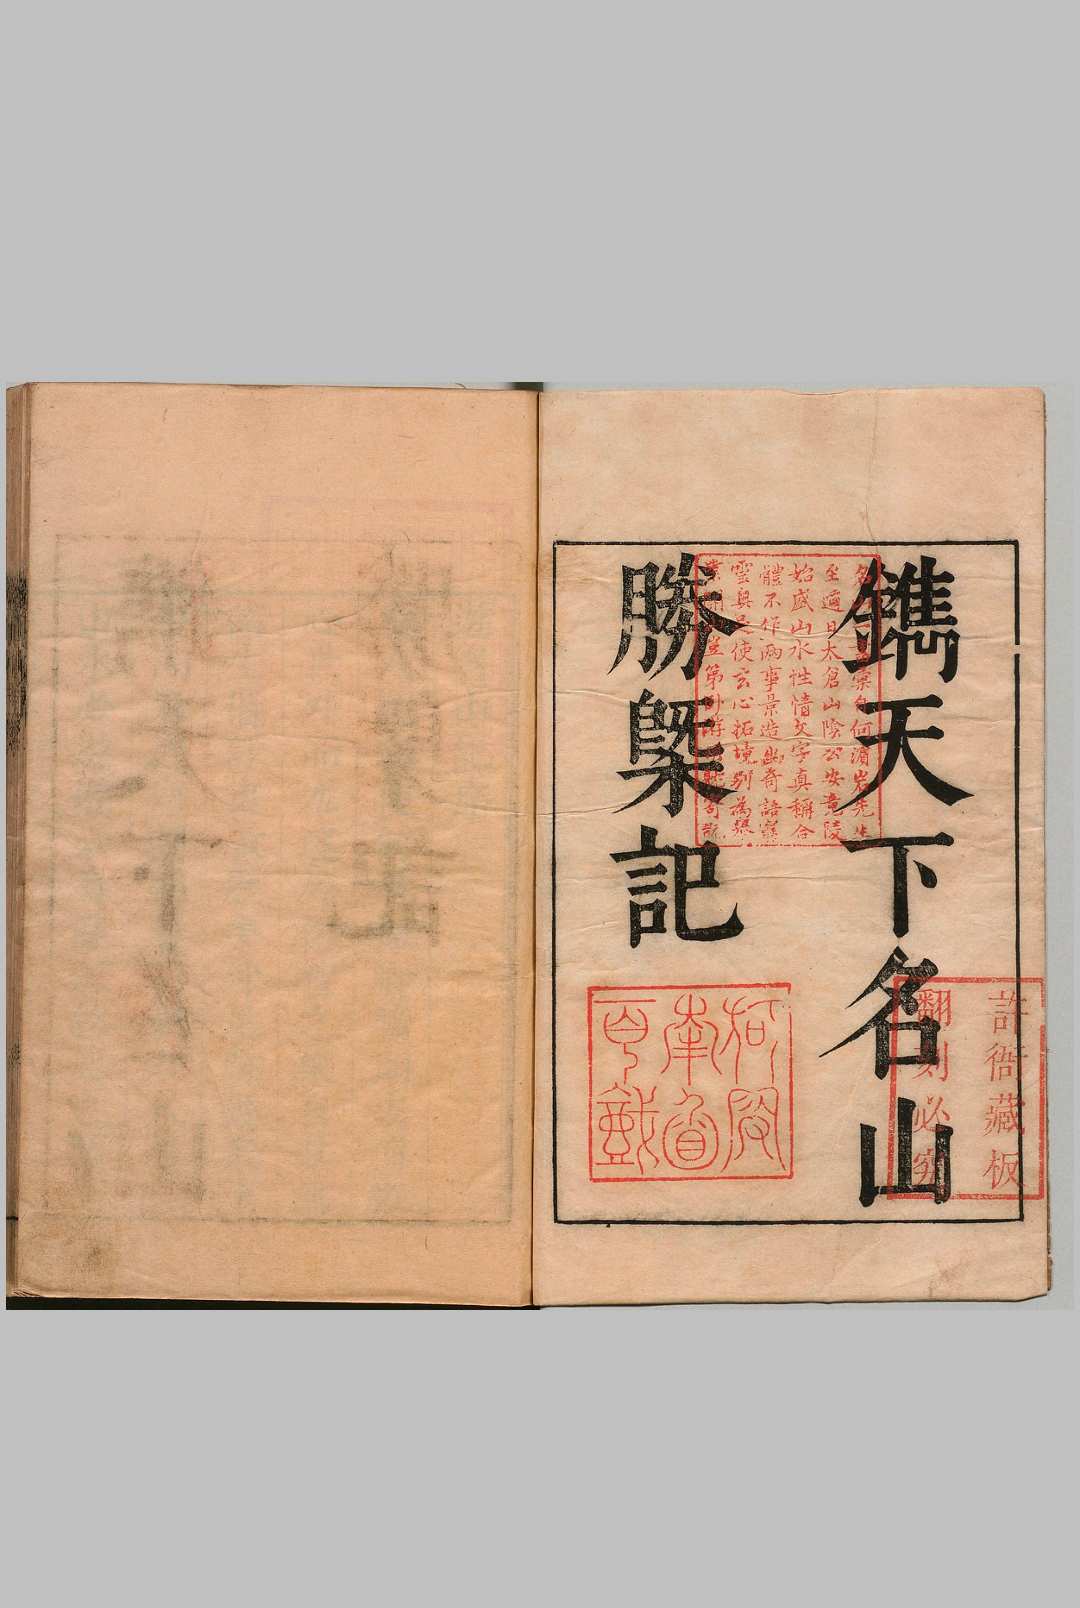 鐫天下名山
勝槩記
名山一記彙自何濵岩先生
至適日太倉山陰公安竟陵
始盛山水性情文字真稱合
體不作兩事景造幽奇語窮
靈與足使玄心拓境別為
第卧游
許衙藏板
翻刻必究